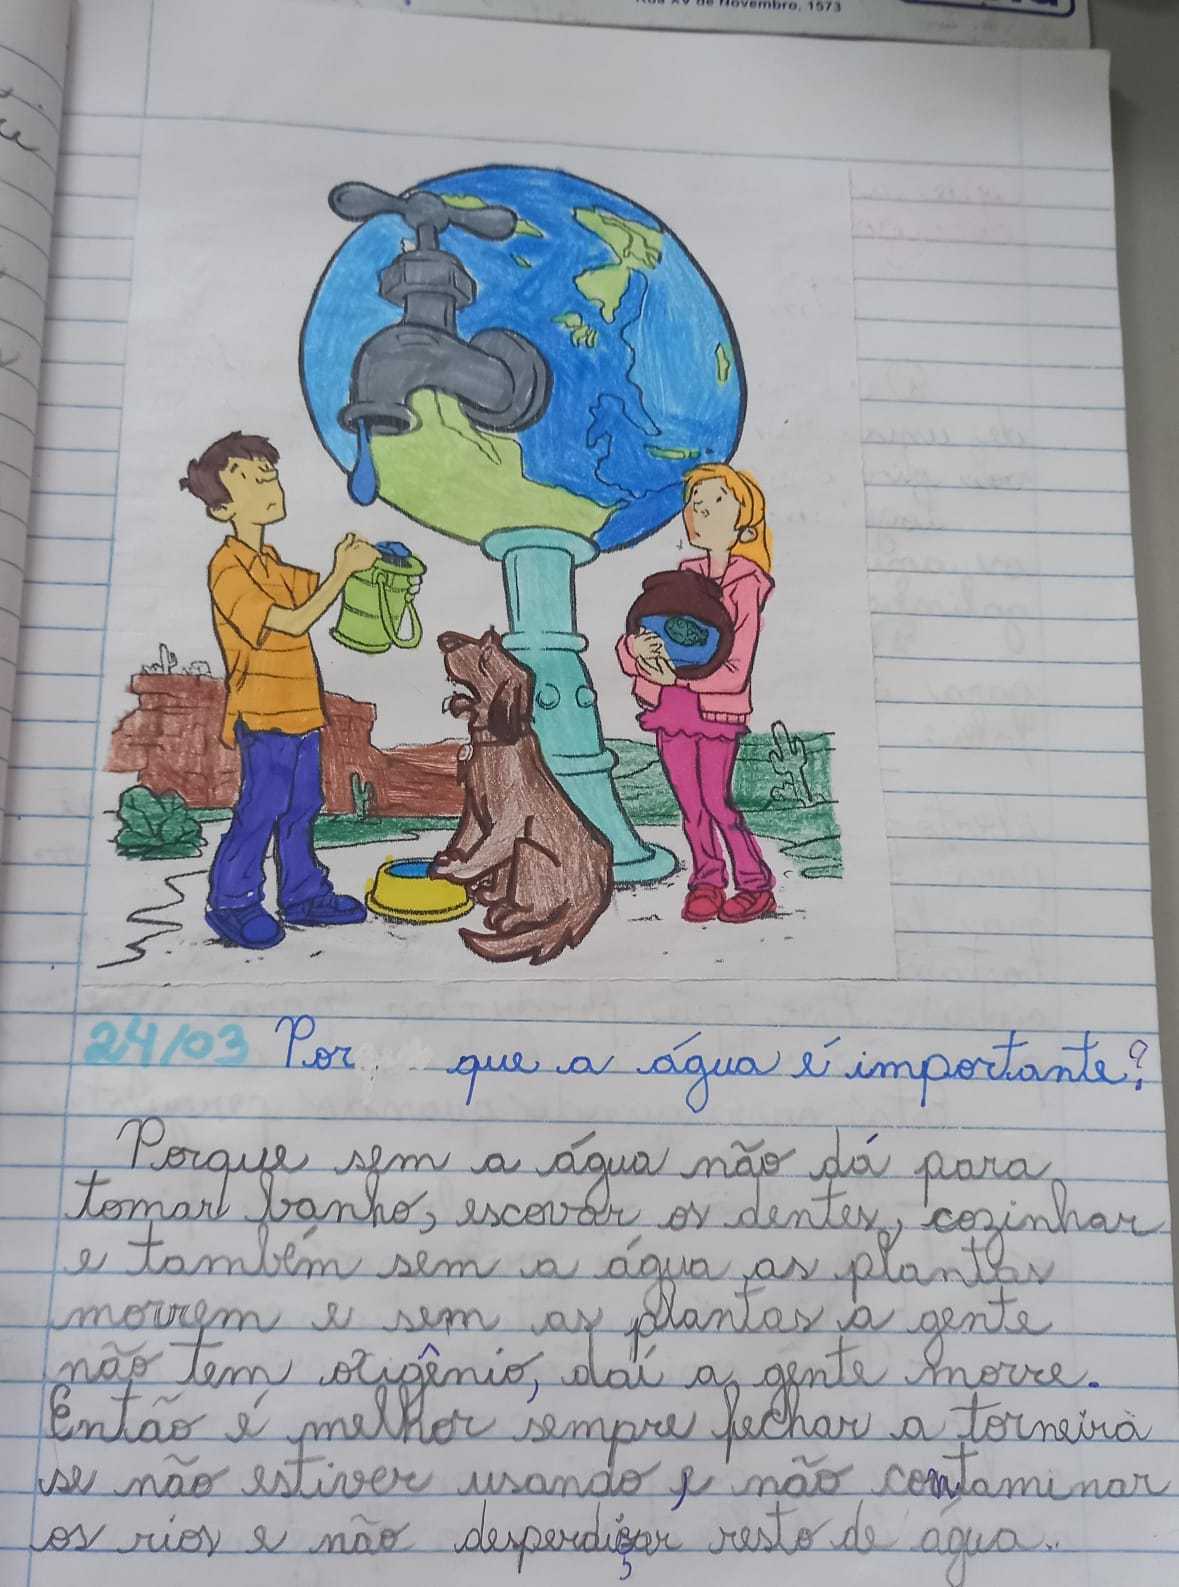 Rua XV de Novembro, 1573
24/03 Por que a água é importante?
Porque sem a água não dá para
tomar banho, escovar os dentes, cozinhar
e também sem a água as plantas
morrem e sem as plantas a gente
não tem oxigênio, daí a gente morre.
Então é melhor sempre fechar a torneira
se não estiver usando, e não contaminar
os rios e não desperdiçar resto de água..